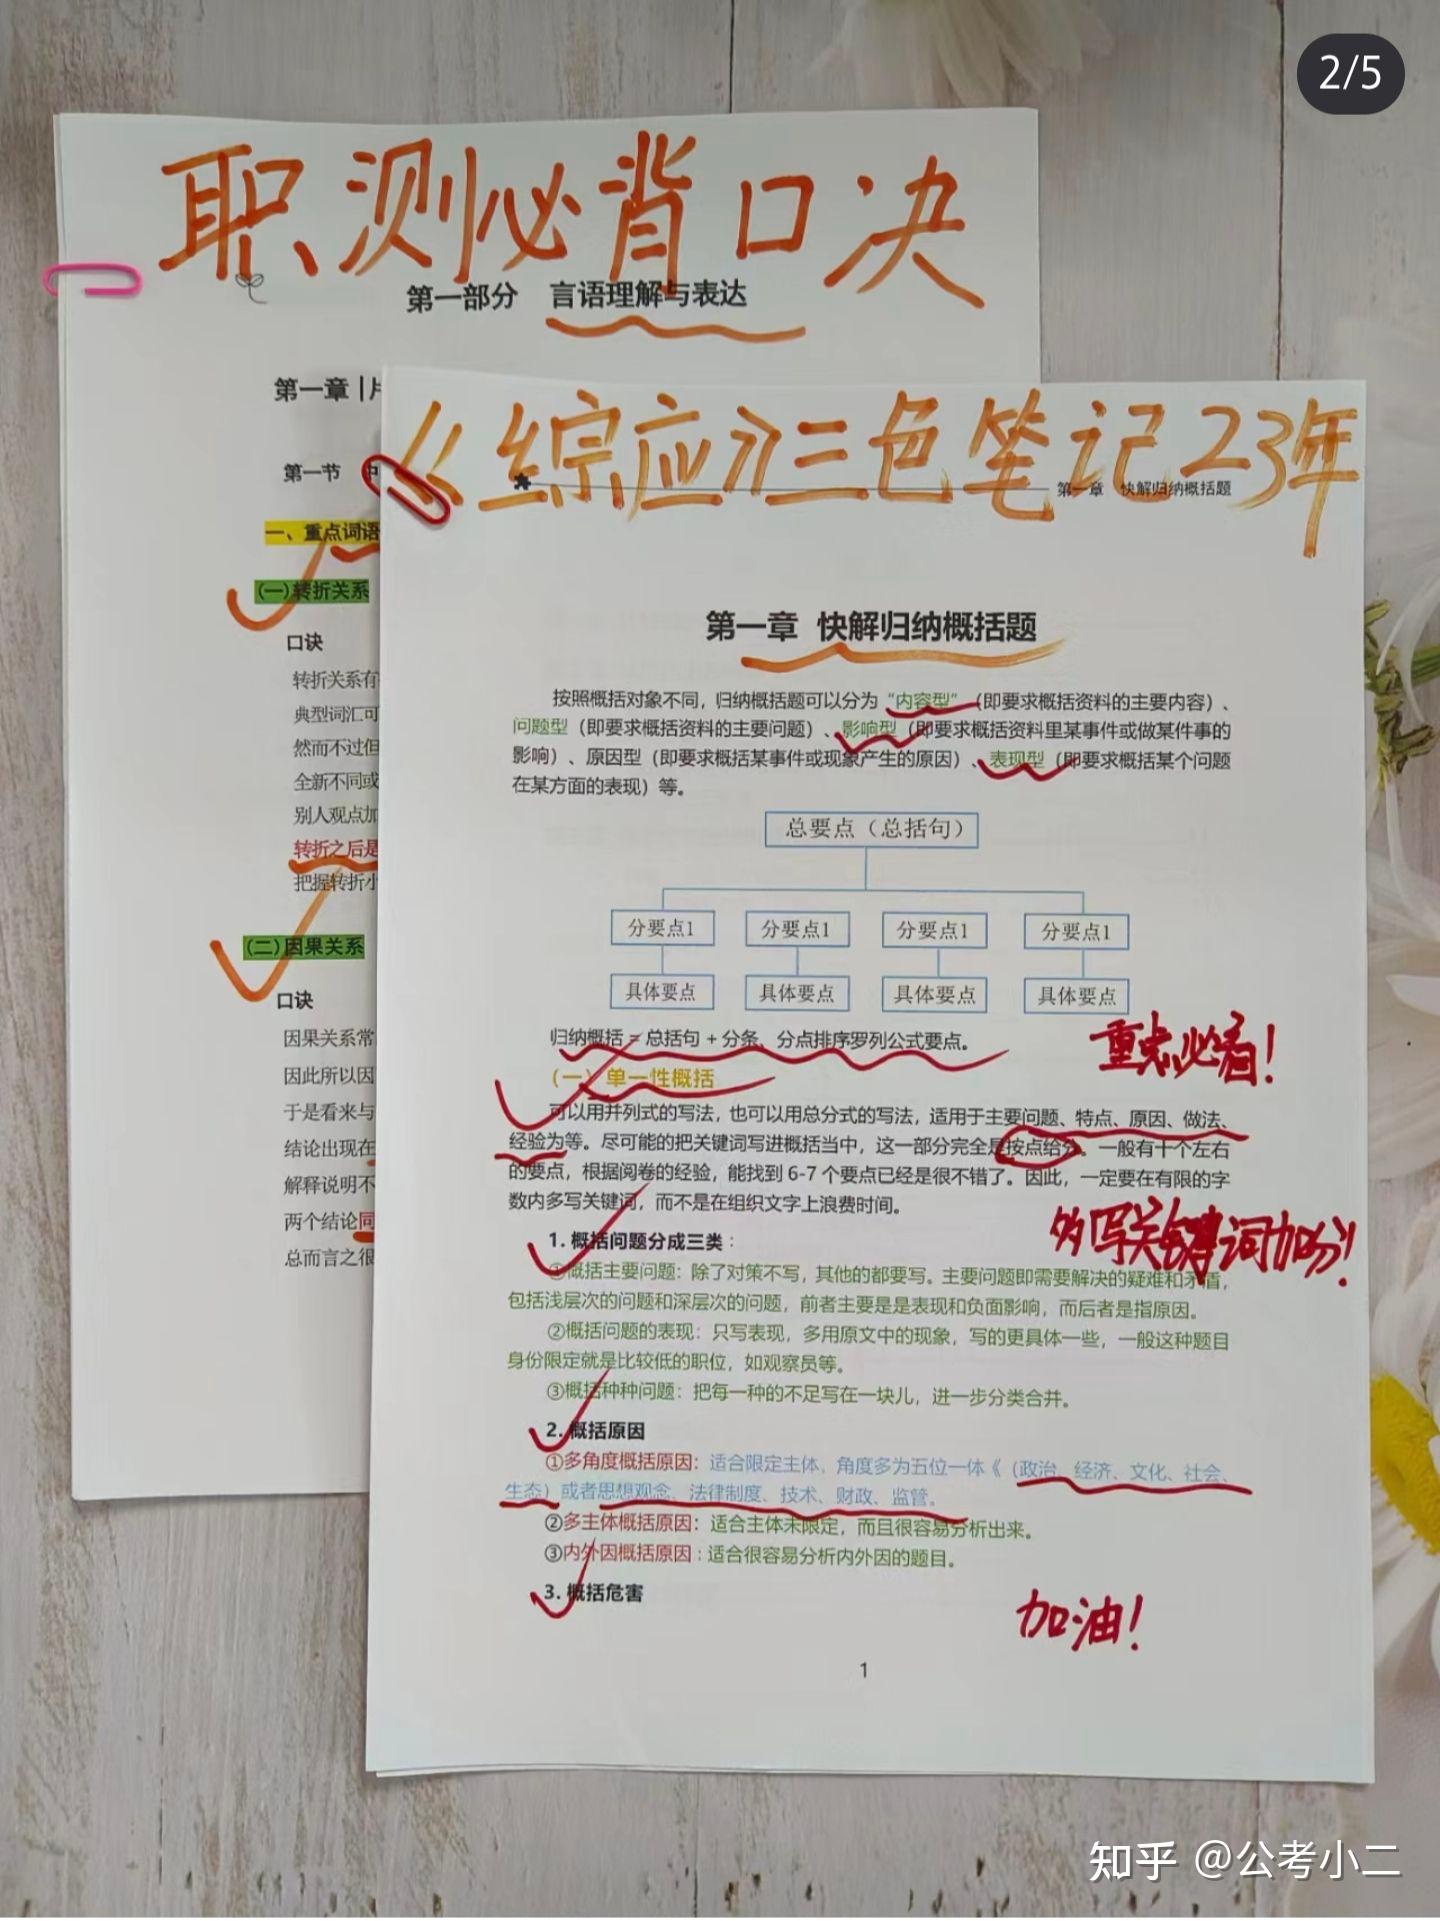 2/5
职测必背口决
第一部分 言语理解与表达
第一章
第一节
一、重点词语
(一)转折关系
口诀
转折关系有
典型词汇可
然而不过但
全新不同或
别人观点加
转折之后是
把握转折小
(二)因果关系
口诀
因果关系常
因此所以因
于是看来与
结论出现在
解释说明不
两个结论同
总而言之很
《综应》三色笔记23年
第一章 快解归纳概括题
第一章 快解归纳概括题
按照概括对象不同，归纳概括题可以分为“内容型”（即要求概括资料的主要内容）、
问题型（即要求概括资料的主要问题）、影响型（即要求概括资料里某事件或做某件事的
影响）、原因型（即要求概括某事件或现象产生的原因）、表现型（即要求概括某个问题
在某方面的表现）等。
总要点（总括句）
分要点1 分要点1 分要点1 分要点1
具体要点 具体要点 具体要点 具体要点
归纳概括 = 总括句 + 分条、分点排序罗列公式要点。
重点必看！
（一）单一性概括
可以用并列式的写法，也可以用总分式的写法，适用于主要问题、特点、原因、做法、
经验为等。尽可能的把关键词写进概括当中，这一部分完全是按点给分。一般有十个左右
的要点，根据阅卷的经验，能找到 6-7 个要点已经是很不错了。因此，一定要在有限的字
数内多写关键词，而不是在组织文字上浪费时间。
多写关键词加分！
1. 概括问题分成三类：
①概括主要问题：除了对策不写，其他的都要写。主要问题即需要解决的疑难和矛盾，
包括浅层次的问题和深层次的问题，前者主要是是表现和负面影响，而后者是指原因。
②概括问题的表现：只写表现，多用原文中的现象，写的更具体一些，一般这种题目
身份限定就是比较低的职位，如观察员等。
③概括种种问题：把每一种的不足写在一块儿，进一步分类合并。
2. 概括原因
①多角度概括原因：适合限定主体，角度多为五位一体《（政治、经济、文化、社会、
生态）或者思想观念、法律制度、技术、财政、监管。
②多主体概括原因：适合主体未限定，而且很容易分析出来。
③内外因概括原因：适合很容易分析内外因的题目。
3. 概括危害
加油！
1
知乎 @公考小二